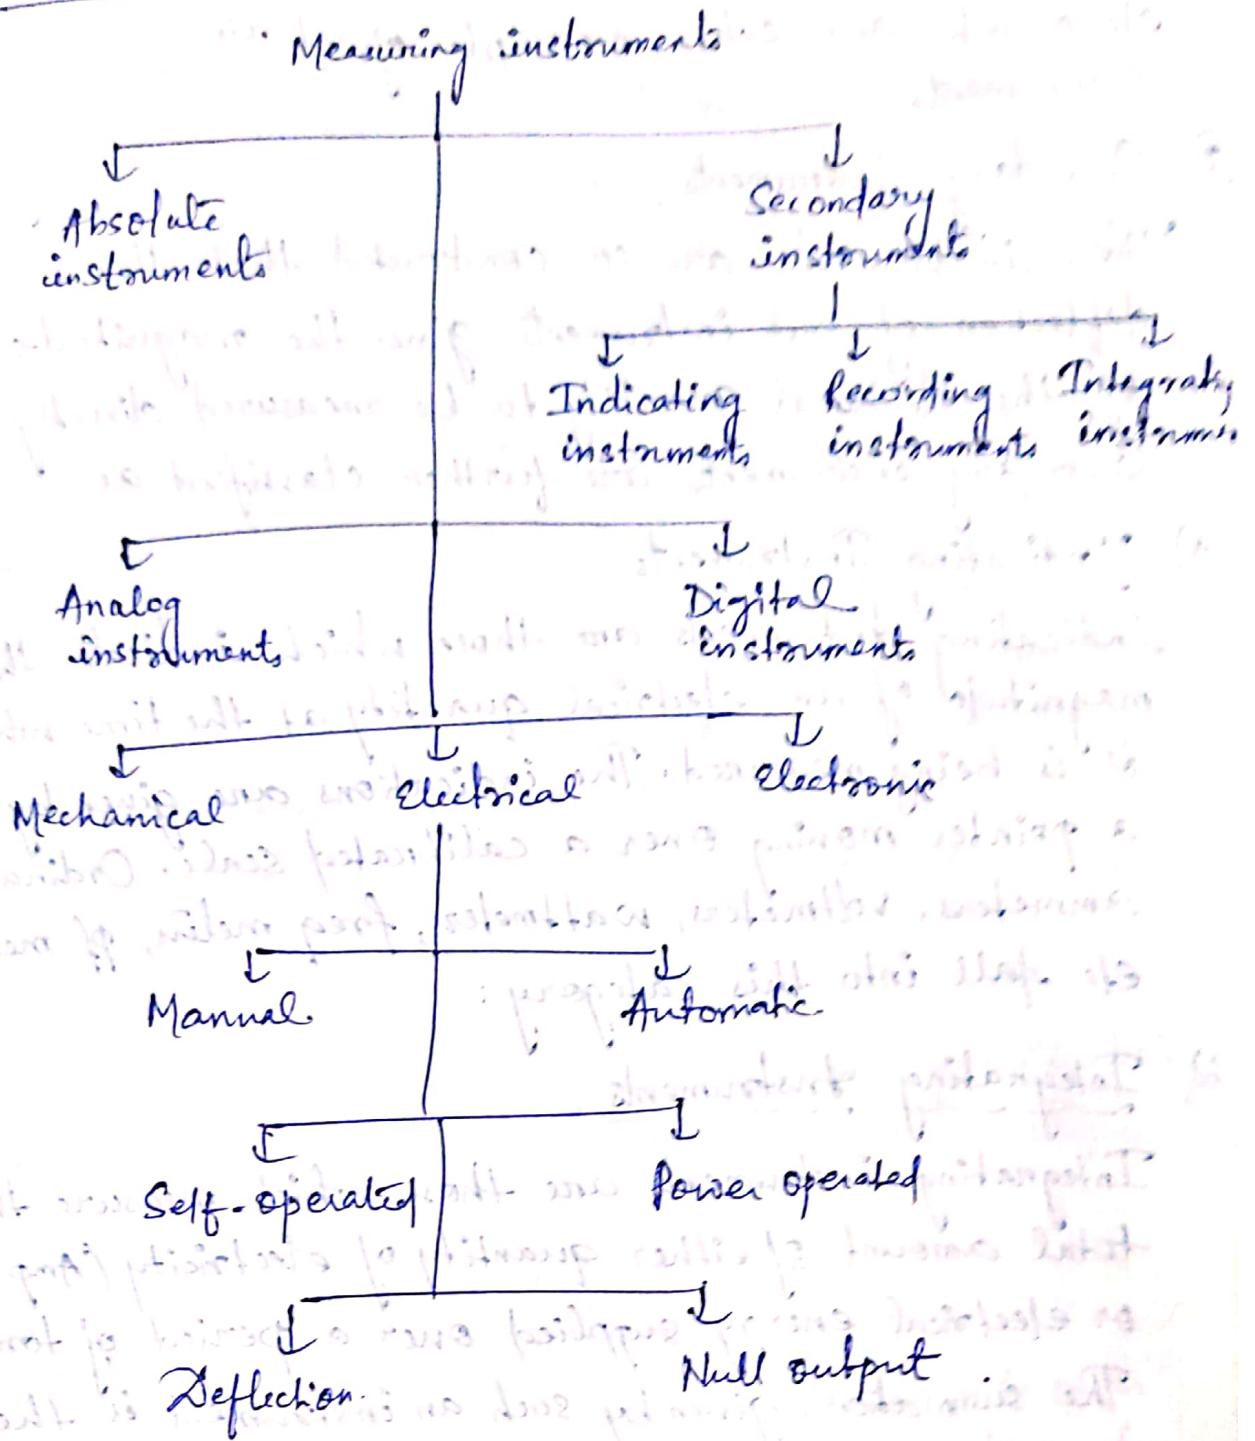 Measuring instruments
Absolute
instruments
Secondary
instruments
Indicating
instruments
Recording
instruments
Analog
instruments
Digital
instruments
Mechanical
Electrical
Electronic
Manual
Automatic
Self-operated
Power operated
Deflection
Null output